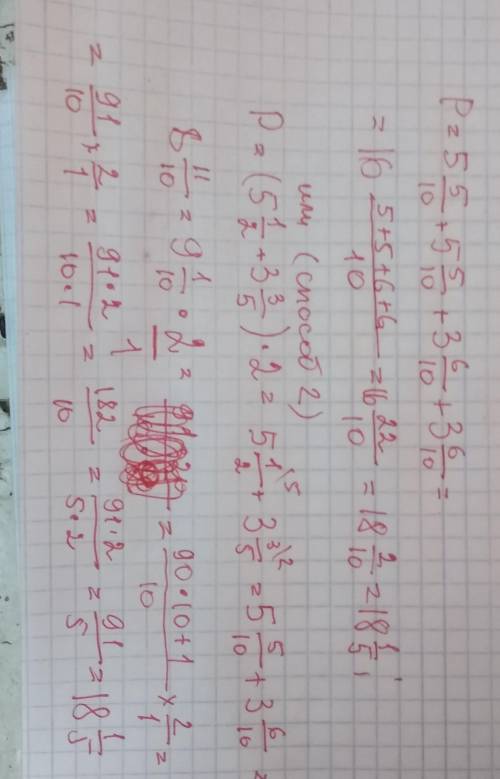 P = 5 5/10 + 5 5/10 + 3 6/10 + 3 6/10 =
= 16 (5+5+6+6)/10 = 16 22/10 = 18 2/10 = 18 1/5;
или (способ 2)
P = (5 1/2 + 3 3/5) · 2 = 5 1/2 \5 + 3 3/5 \2 = 5 5/10 + 3 6/10 =
8 11/10 = 9 1/10 · 2/1 = = (90·10+1)/10 × 2/1 =
= 91/10 × 2/1 = (91·2)/(10·1) = 182/10 = (91·2)/(5·2) = 91/5 = 18 1/5